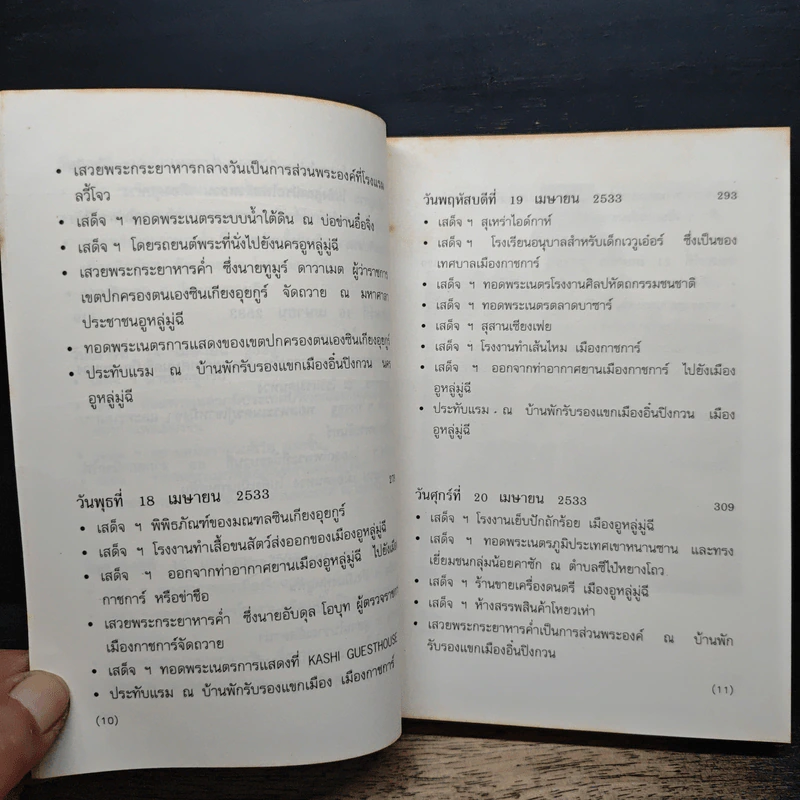 • เสวยพระกระยาหารกลางวันเป็นการส่วนพระองค์ที่โรงแรม
ลวี้โจว
• เสด็จ ฯ ทอดพระเนตรระบบน้ำใต้ดิน ณ บ่อข่านเอ๋อจิ่ง
• เสด็จ ฯ โดยรถยนต์พระที่นั่งไปยังนครอูหลู่มู่ฉี
• เสวยพระกระยาหารค่ำ ซึ่งนายทูมูร์ ดาวาเมต ผู้ว่าราชการ
เขตปกครองตนเองซินเกียงอุยกูร์ จัดถวาย ณ มหาศาลา
ประชาชนอูหลู่มู่ฉี
• ทอดพระเนตรการแสดงของเขตปกครองตนเองซินเกียงอุยกูร์
• ประทับแรม ณ บ้านพักรับรองแขกเมืองอิ๋นปิงกวน นคร
อูหลู่มู่ฉี
วันพุธที่ 18 เมษายน 2533
• เสด็จ ฯ พิพิธภัณฑ์ของมณฑลซินเกียงอุยกูร์
• เสด็จ ฯ โรงงานทำเสื้อขนสัตว์ส่งออกของเมืองอูหลู่มู่ฉี
• เสด็จ ฯ ออกจากท่าอากาศยานเมืองอูหลู่มู่ฉี ไปยังเมือง
กาชการ์ หรือข่าชือ
• เสวยพระกระยาหารค่ำ ซึ่งนายอับดุล โอบุท ผู้ตรวจราชการ
เมืองกาชการ์จัดถวาย
• เสด็จ ฯ ทอดพระเนตรการแสดงที่ KASHI GUESTHOUSE
• ประทับแรม ณ บ้านพักรับรองแขกเมือง เมืองกาชการ์
(10)
วันพฤหัสบดีที่ 19 เมษายน 2533 293
• เสด็จ ฯ สุเหร่าไอด์กาห์
• เสด็จ ฯ โรงเรียนอนุบาลสำหรับเด็กเววูเอ๋อร์ ซึ่งเป็นของ
เทศบาลเมืองกาชการ์
• เสด็จ ฯ ทอดพระเนตรโรงงานศิลปหัตถกรรมชนชาติ
• เสด็จ ฯ ทอดพระเนตรตลาดบาซาร์
• เสด็จ ฯ สุสานเซียงเฟย
• เสด็จ ฯ โรงงานทำเส้นไหม เมืองกาชการ์
• เสด็จ ฯ ออกจากท่าอากาศยานเมืองกาชการ์ ไปยังเมือง
อูหลู่มู่ฉี
• ประทับแรม ณ บ้านพักรับรองแขกเมืองอิ๋นปิงกวน เมือง
อูหลู่มู่ฉี
วันศุกร์ที่ 20 เมษายน 2533 309
• เสด็จ ฯ โรงงานเย็บปักถักร้อย เมืองอูหลู่มู่ฉี
• เสด็จ ฯ ทอดพระเนตรภูมิประเทศเขาหนานซาน และทรง
เยี่ยมขนกลุ่มน้อยคาซัก ณ ตำบลซีไป๋หยางโถว
• เสด็จ ฯ ร้านขายเครื่องดนตรี เมืองอูหลู่มู่ฉี
• เสด็จ ฯ ห้างสรรพสินค้าโหยวเห่า
• เสวยพระกระยาหารค่ำเป็นการส่วนพระองค์ ณ บ้านพัก
รับรองแขกเมืองอิ๋นปิงกวน
(11)